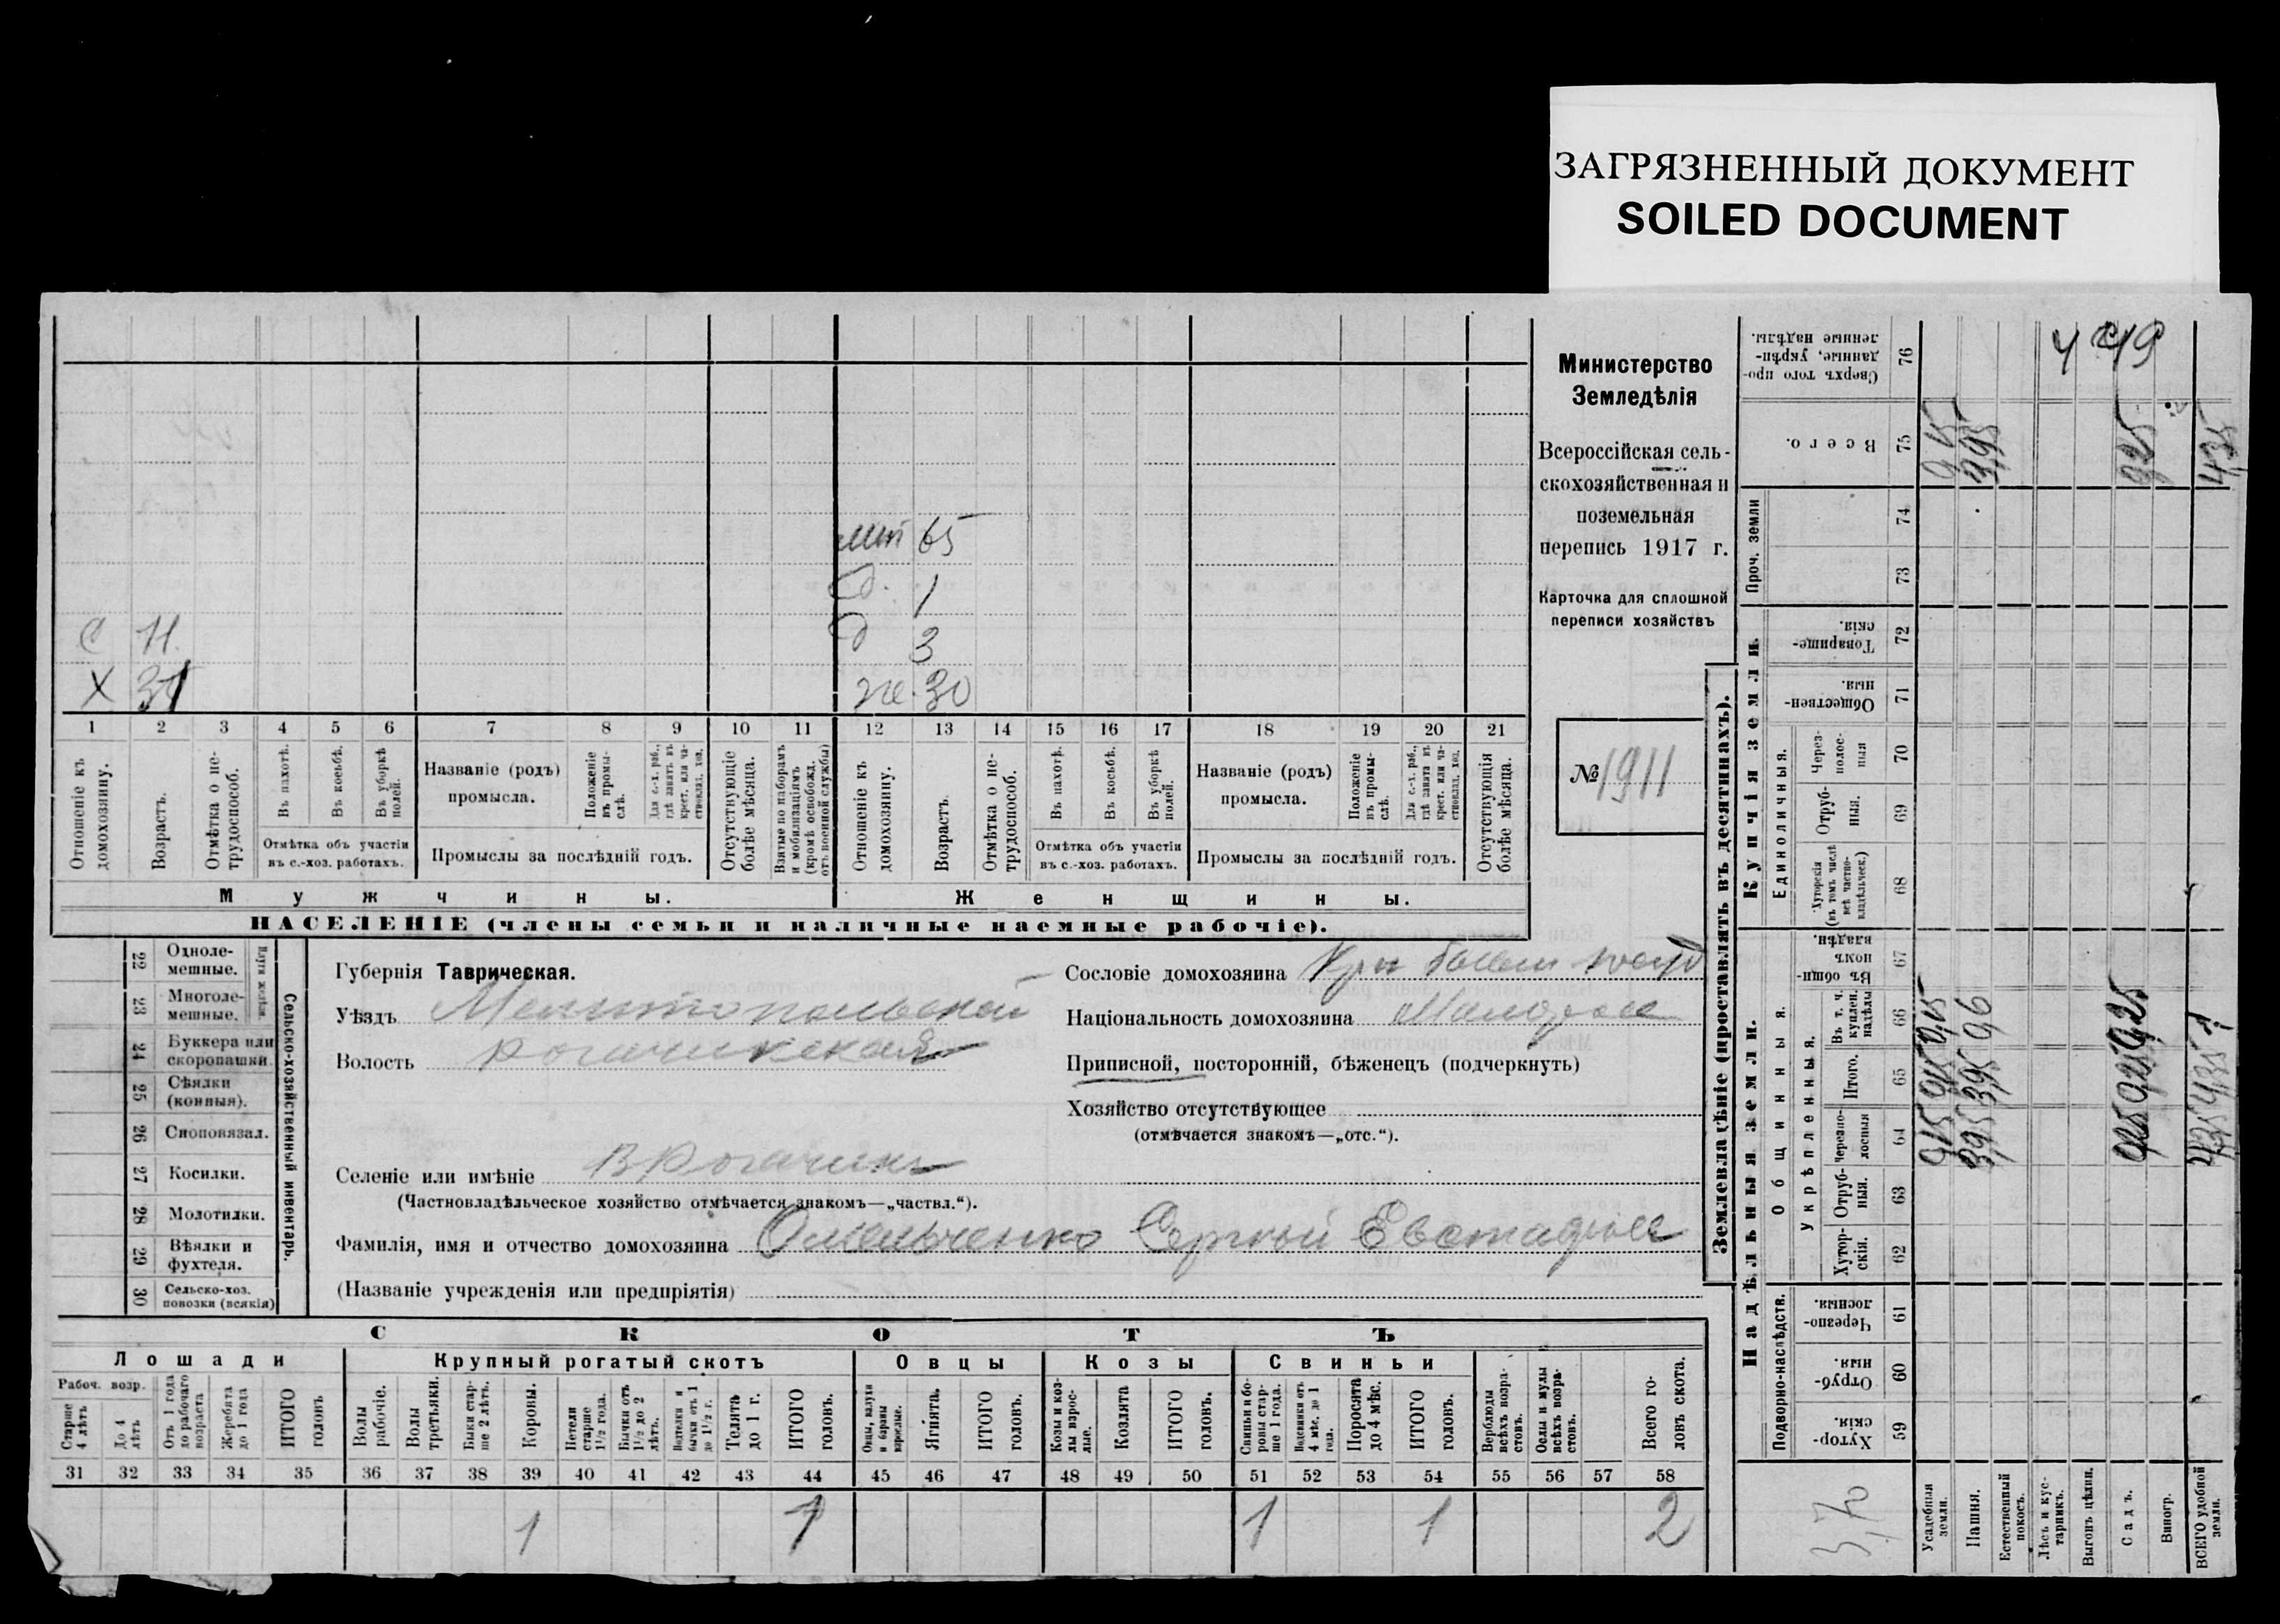 ЗАГРЯЗНЕННЫЙ ДОКУМЕНТ
SOILED DOCUMENT
С 11.
Х 31
мт 65
д. 1
д 3
же. 30
1 2 3 4 5 6 7 8 9 10 11 12 13 14 15 16 17 18 19 20 21
Отношеніе къ домохозяину.
Возрастъ.
Отмѣтка о нетрудоспособ.
Въ пахотѣ.
Въ косьбѣ.
Въ уборкѣ полей.
Отмѣтка объ участіи въ с.-хоз. работахъ.
Названіе (родъ) промысла.
Положеніе въ промыслѣ.
Для с.-х. раб., гдѣ занятъ въ крест. или частновлад. хоз.
Промыслы за послѣдній годъ.
Отсутствующіе болѣе мѣсяца.
Взятые по наборамъ и мобилизаціямъ (кромѣ освобожд. отъ военной службы)
Отношеніе къ домохозяину.
Возрастъ.
Отмѣтка о нетрудоспособ.
Въ пахотѣ.
Въ косьбѣ.
Въ уборкѣ полей.
Отмѣтка объ участіи въ с.-хоз. работахъ.
Названіе (родъ) промысла.
Положеніе въ промыслѣ.
Для с.-х. раб., гдѣ занята въ крест. или частновлад. хоз.
Промыслы за послѣдній годъ.
Отсутствующія болѣе мѣсяца.
Мужчины.
Женщины.
НАСЕЛЕНІЕ (члены семьи и наличные наемные рабочіе).
Министерство
Земледѣлія
Всероссійская сель-
скохозяйственная и
поземельная
перепись 1917 г.
Карточка для сплошной
переписи хозяйствъ
№ 1911
22 Однолемешные.
23 Многолемешные.
24 Буккера или скоропашки.
25 Сѣялки (конныя).
26 Сноповязал.
27 Косилки.
28 Молотилки.
29 Вѣялки и фухтеля.
30 Сельско-хоз. повозки (всякія)
Сельско-хозяйственный инвентарь.
Губернія Таврическая.
Уѣздъ Мелитопольский
Волость Рогачикская
Селеніе или имѣніе В Рогачик
(Частновладѣльческое хозяйство отмѣчается знакомъ—„частвл.“).
Фамилія, имя и отчество домохозяина Омельченко Сергѣй Евстафіев
(Названіе учрежденія или предпріятія)
Сословіе домохозяина
Національность домохозяина Малорос
Приписной, посторонній, бѣженецъ (подчеркнуть)
Хозяйство отсутствующее
(отмѣчается знакомъ—„отс.“).
СКОТЪ
Лошади
Крупный рогатый скотъ
Овцы
Козы
Свиньи
Рабоч. возр.
Старше 4 лѣтъ
До 4 лѣтъ
Отъ 1 года до рабочаго возраста
Жеребята до 1 года
ИТОГО головъ
Волы рабочіе.
Волы третьяки.
Быки старше 2 лѣтъ.
Коровы.
Нетели старше 1½ года.
Бычки отъ 1½ до 2 лѣтъ.
Телята до 1 г.
ИТОГО головъ.
Овцы, валухи и бараны взрослые.
Ягнята.
ИТОГО головъ.
Козы и козлы взрослые.
Козлята
ИТОГО головъ.
Свиньи и боровы старше 1 года.
Подсвинки отъ 4 мѣс. до 1 года.
Поросята до 4 мѣс.
ИТОГО головъ.
Верблюды всѣхъ возрастовъ.
Ослы и мулы всѣхъ возрастовъ.
Всего головъ скота.
31 32 33 34 35 36 37 38 39 40 41 42 43 44 45 46 47 48 49 50 51 52 53 54 55 56 57 58
1 1 1 1 2
Землевладѣніе (проставлять въ десятинахъ).
Надѣльныя земли.
Купчія земли.
Проч. земли
Подворно-наслѣдств.
Общинныя.
Укрѣпленныя.
Единоличныя.
Хуторскія 59
Отрубныя. 60
Черезполосныя. 61
Хуторскія. 62
Отрубныя. 63
Черезполосныя 64
Итого. 65
Въ т. ч. куплен. надѣлы 66
Въ общинномъ владѣн. 67
Хуторскія (въ томъ числѣ всѣ частновладѣльческ.) 68
Отрубныя. 69
Черезполосныя 70
Общественныя. 71
Товарищескія. 72
73
74
Всего. 75
Сверхъ того проданные, укрѣпленные надѣлы. 76
Усадебныя земли.
Пашня. 3,95
Естественный покосъ.
Лѣсъ и кустарникъ.
Выгонъ цѣлин.
Садъ.
Виногр.
ВСЕГО удобной земли. 4,35
3,70